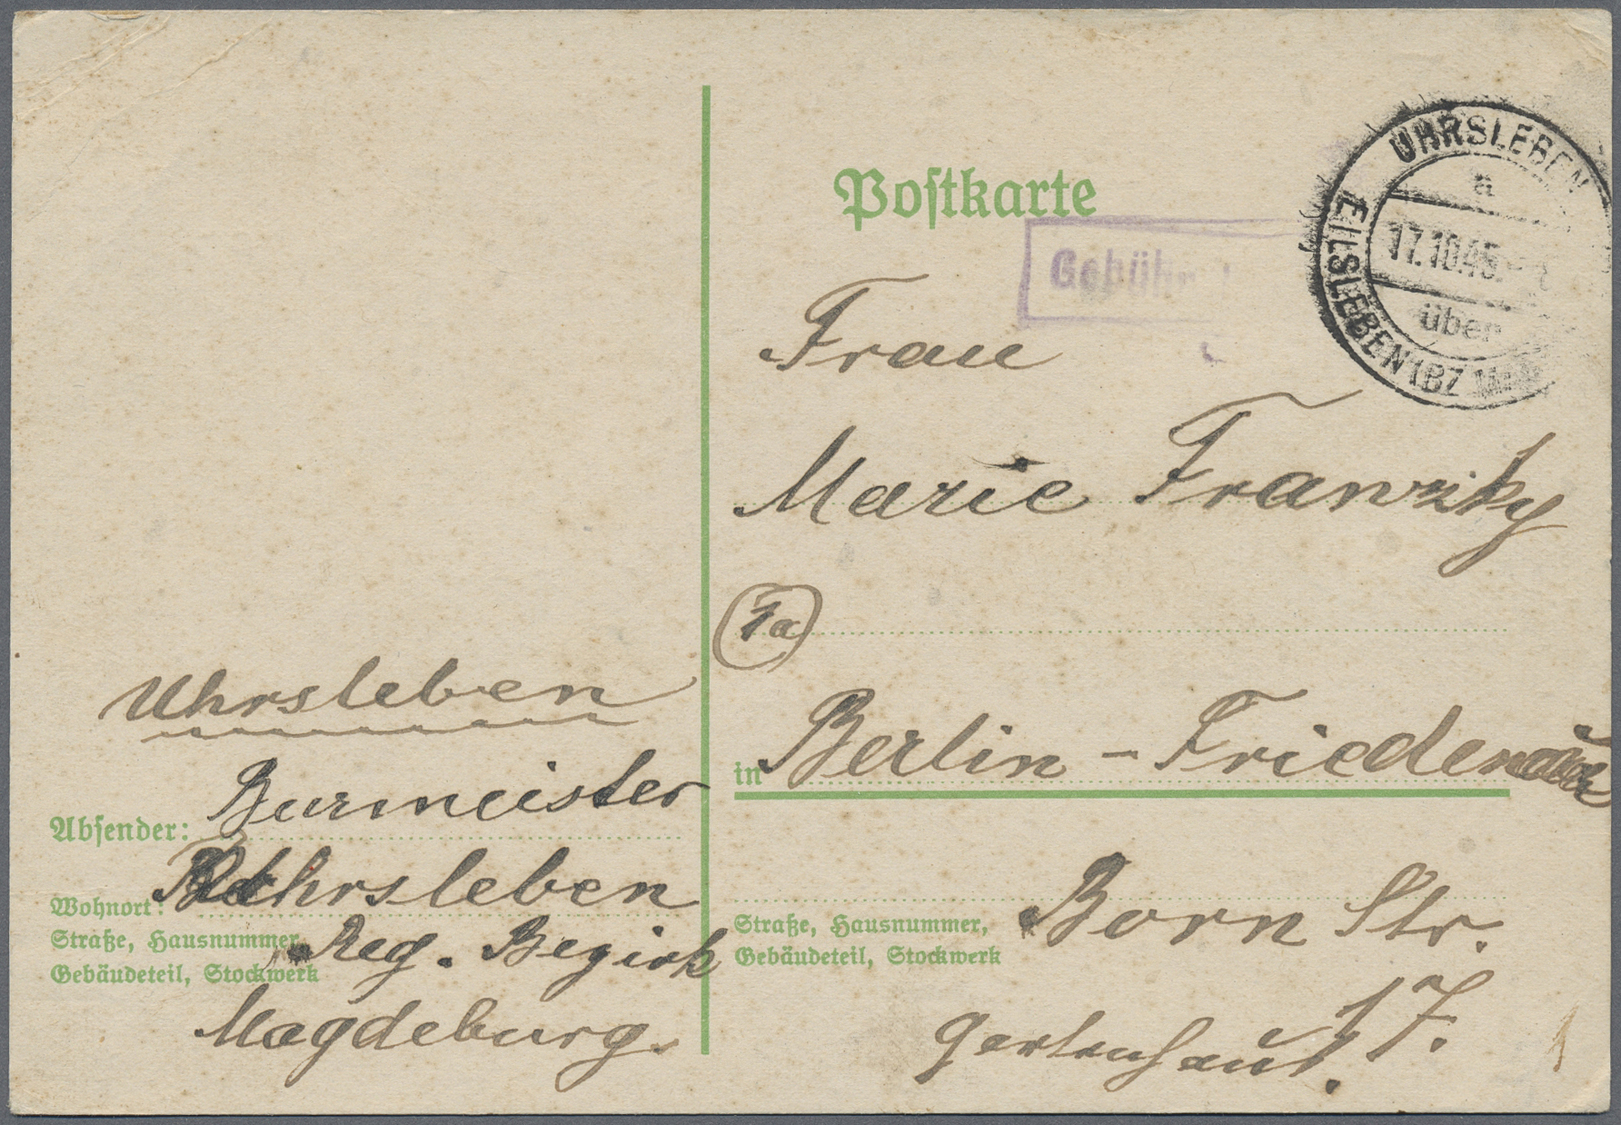 Postkarte
Gebühr
UHRSLEBEN
a
17.10.45
über
EILSLEBEN (BZ
Frau
Marie Franzky
1a
in Berlin - Friedenau
Straße, Hausnummer,
Gebäudeteil, Stockwerk
Born Str.
17.
Gartenhaus.
Uhrsleben
Absender: Burmeister
Wohnort: Uhrsleben
Straße, Hausnummer,
Gebäudeteil, Stockwerk
Reg. Bezirk
Magdeburg.